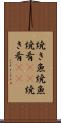 焼き魚焼魚
焼肴焼
き肴